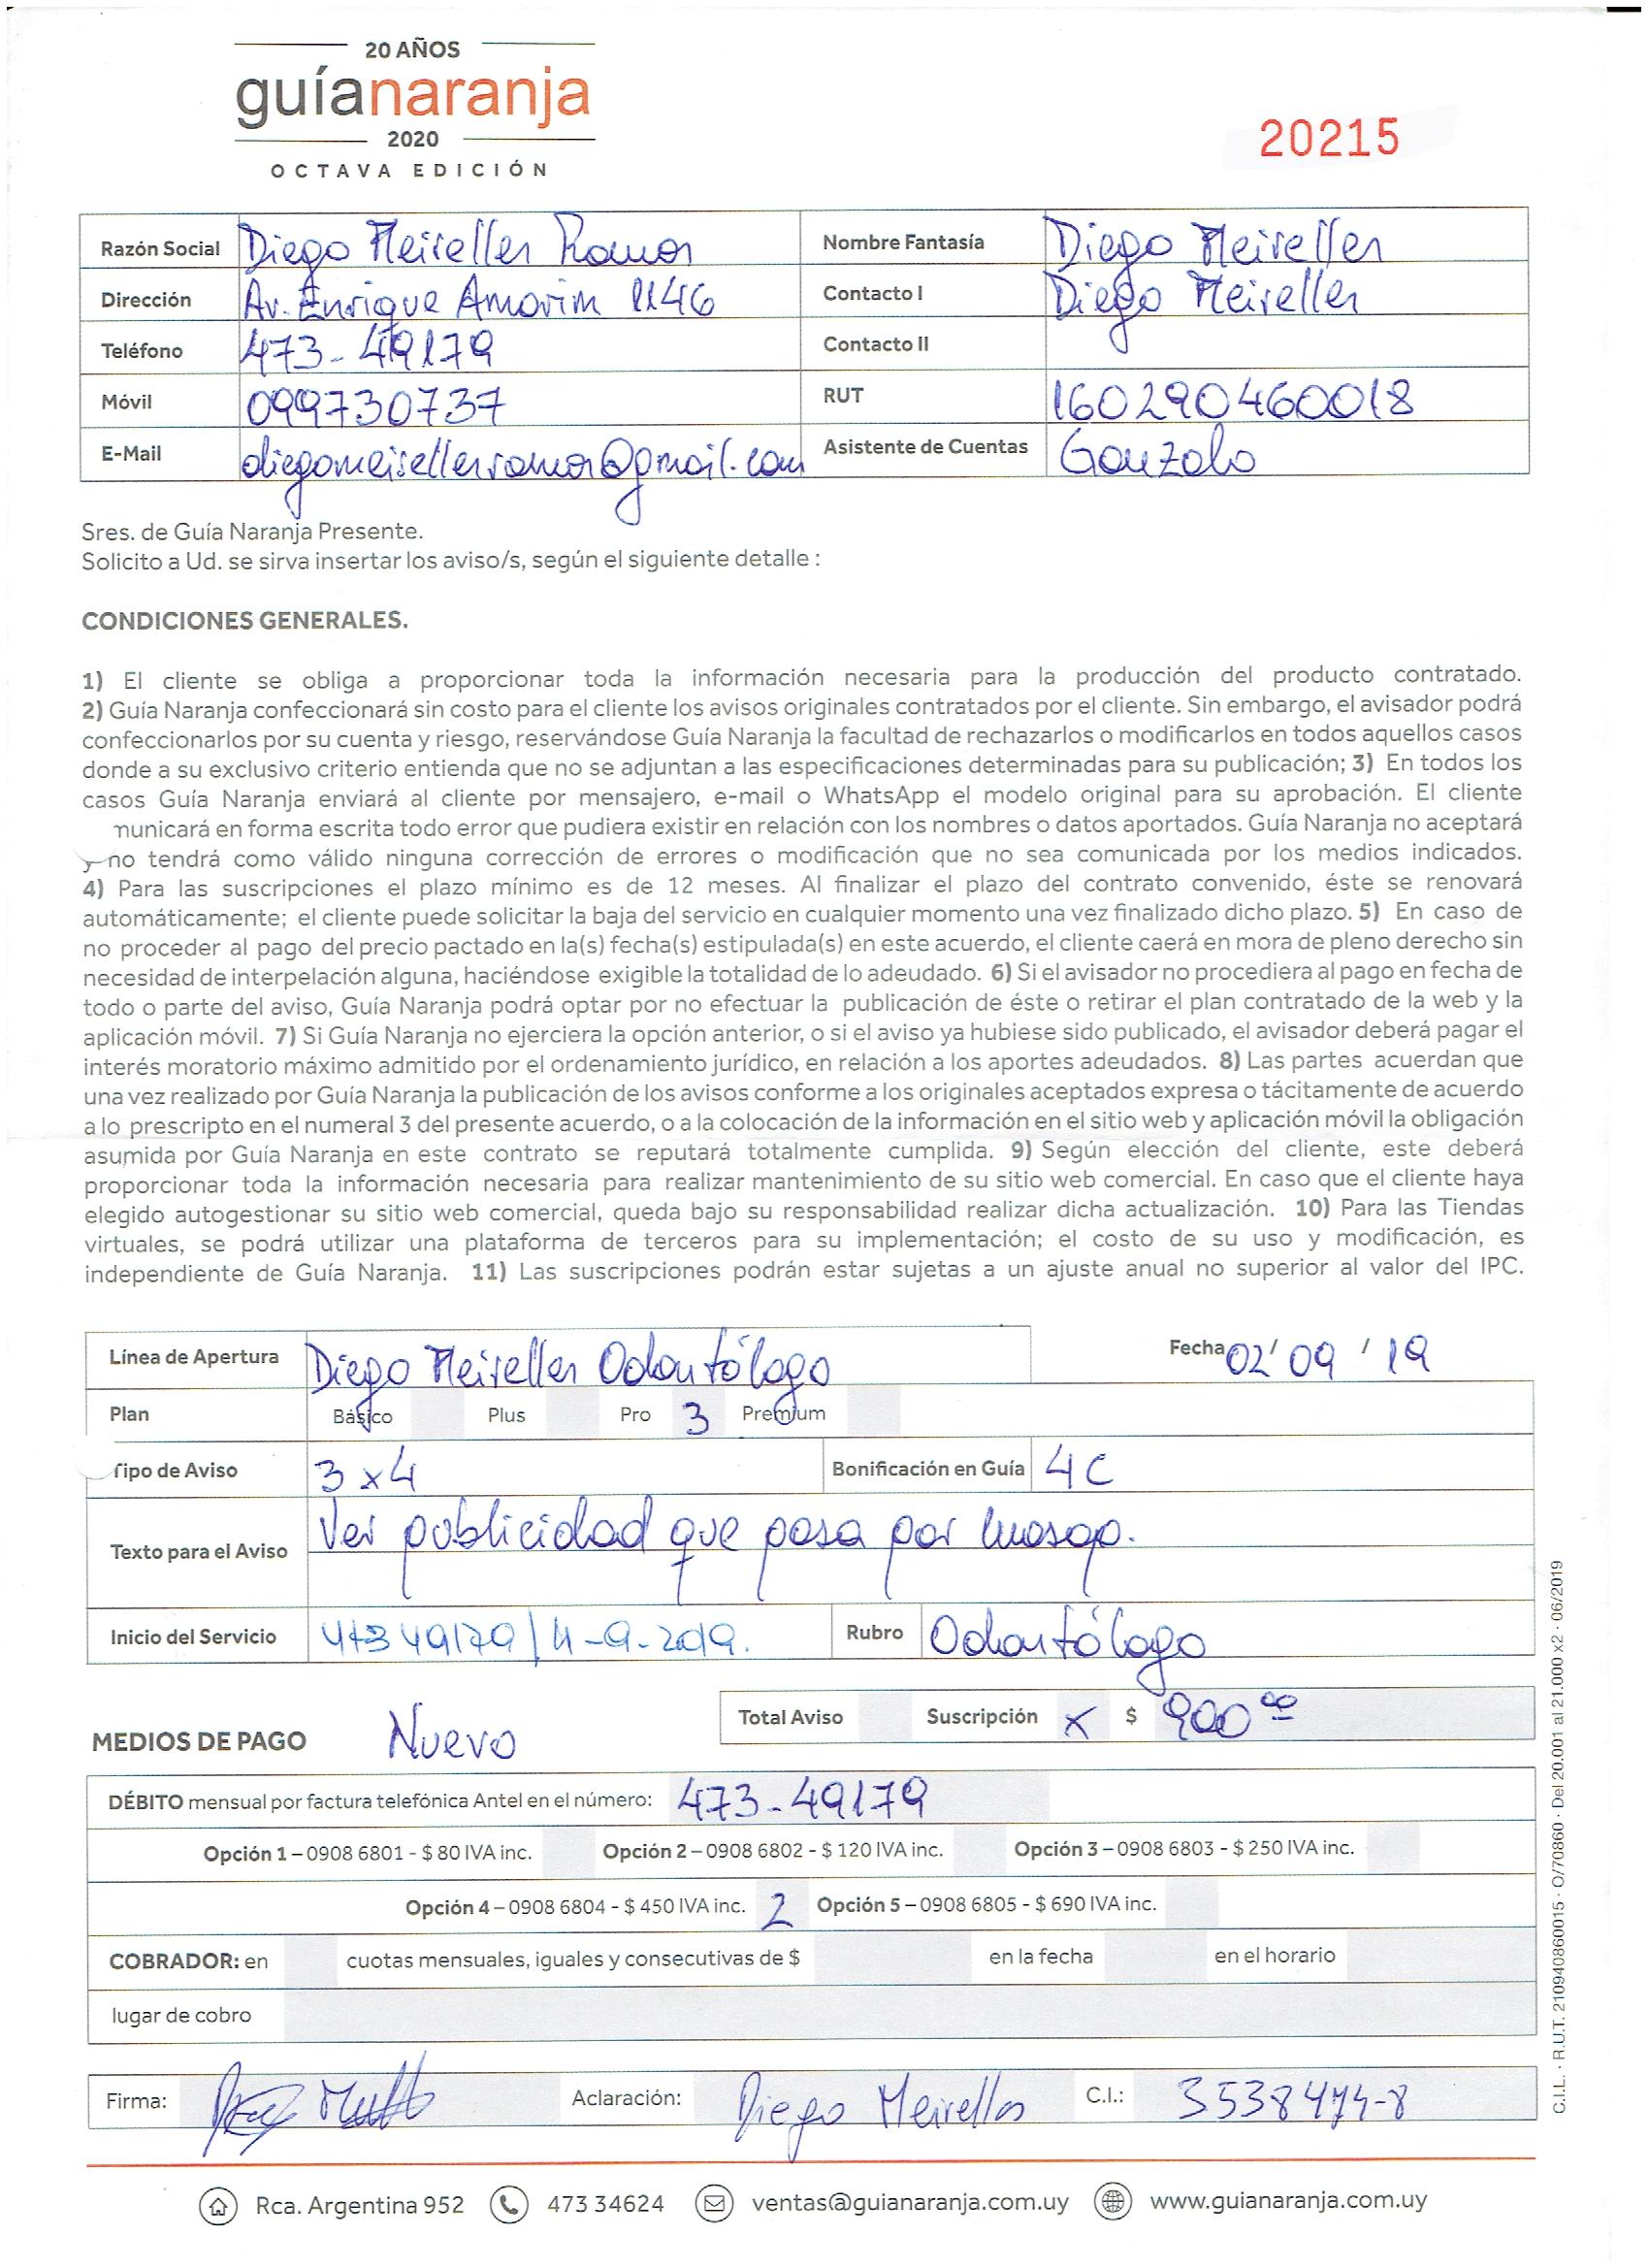 20 AÑOS
guíanaranja
2020
OCTAVA EDICIÓN
20215
Razón Social Diego Meirelles Ramos Nombre Fantasía Diego Meirelles
Dirección Av. Enrique Amorim 1146 Contacto I Diego Meirelles
Teléfono 473-49179 Contacto II
Móvil 099730737 RUT 160290460018
E-Mail diegomeirellesramos@gmail.com Asistente de Cuentas Gonzalo
Sres. de Guía Naranja Presente.
Solicito a Ud. se sirva insertar los aviso/s, según el siguiente detalle :
CONDICIONES GENERALES.
1) El cliente se obliga a proporcionar toda la información necesaria para la producción del producto contratado.
2) Guía Naranja confeccionará sin costo para el cliente los avisos originales contratados por el cliente. Sin embargo, el avisador podrá
confeccionarlos por su cuenta y riesgo, reservándose Guía Naranja la facultad de rechazarlos o modificarlos en todos aquellos casos
donde a su exclusivo criterio entienda que no se adjuntan a las especificaciones determinadas para su publicación; 3) En todos los
casos Guía Naranja enviará al cliente por mensajero, e-mail o WhatsApp el modelo original para su aprobación. El cliente
municará en forma escrita todo error que pudiera existir en relación con los nombres o datos aportados. Guía Naranja no aceptará
y no tendrá como válido ninguna corrección de errores o modificación que no sea comunicada por los medios indicados.
4) Para las suscripciones el plazo mínimo es de 12 meses. Al finalizar el plazo del contrato convenido, éste se renovará
automáticamente; el cliente puede solicitar la baja del servicio en cualquier momento una vez finalizado dicho plazo. 5) En caso de
no proceder al pago del precio pactado en la(s) fecha(s) estipulada(s) en este acuerdo, el cliente caerá en mora de pleno derecho sin
necesidad de interpelación alguna, haciéndose exigible la totalidad de lo adeudado. 6) Si el avisador no procediera al pago en fecha de
todo o parte del aviso, Guía Naranja podrá optar por no efectuar la publicación de éste o retirar el plan contratado de la web y la
aplicación móvil. 7) Si Guía Naranja no ejerciera la opción anterior, o si el aviso ya hubiese sido publicado, el avisador deberá pagar el
interés moratorio máximo admitido por el ordenamiento jurídico, en relación a los aportes adeudados. 8) Las partes acuerdan que
una vez realizado por Guía Naranja la publicación de los avisos conforme a los originales aceptados expresa o tácitamente de acuerdo
a lo prescripto en el numeral 3 del presente acuerdo, o a la colocación de la información en el sitio web y aplicación móvil la obligación
asumida por Guía Naranja en este contrato se reputará totalmente cumplida. 9) Según elección del cliente, este deberá
proporcionar toda la información necesaria para realizar mantenimiento de su sitio web comercial. En caso que el cliente haya
elegido autogestionar su sitio web comercial, queda bajo su responsabilidad realizar dicha actualización. 10) Para las Tiendas
virtuales, se podrá utilizar una plataforma de terceros para su implementación; el costo de su uso y modificación, es
independiente de Guía Naranja. 11) Las suscripciones podrán estar sujetas a un ajuste anual no superior al valor del IPC.
Línea de Apertura Diego Meirelles Odontólogo Fecha 02/ 09 / 19
Plan Básico Plus Pro 3 Premium
Tipo de Aviso 3 x 4 Bonificación en Guía 4C
Texto para el Aviso Ver publicidad que pasa por
Inicio del Servicio 47349179 / 11-9-2019. Rubro Odontólogo
Total Aviso Suscripción x $ 900 00
MEDIOS DE PAGO Nuevo
DÉBITO mensual por factura telefónica Antel en el número: 473-49179
Opción 1 – 0908 6801 - $ 80 IVA inc. Opción 2 – 0908 6802 - $ 120 IVA inc. Opción 3 – 0908 6803 - $ 250 IVA inc.
Opción 4 – 0908 6804 - $ 450 IVA inc. 2 Opción 5 – 0908 6805 - $ 690 IVA inc.
COBRADOR: en cuotas mensuales, iguales y consecutivas de $ en la fecha en el horario
lugar de cobro
Firma: Aclaración: Diego Meirelles C.I.: 3538474-8
Rca. Argentina 952 473 34624 ventas@guianaranja.com.uy www.guianaranja.com.uy
C.I.L. · R.U.T. 210940860015 · O/70860 · Del 20.001 al 21.000 x2 · 06/2019